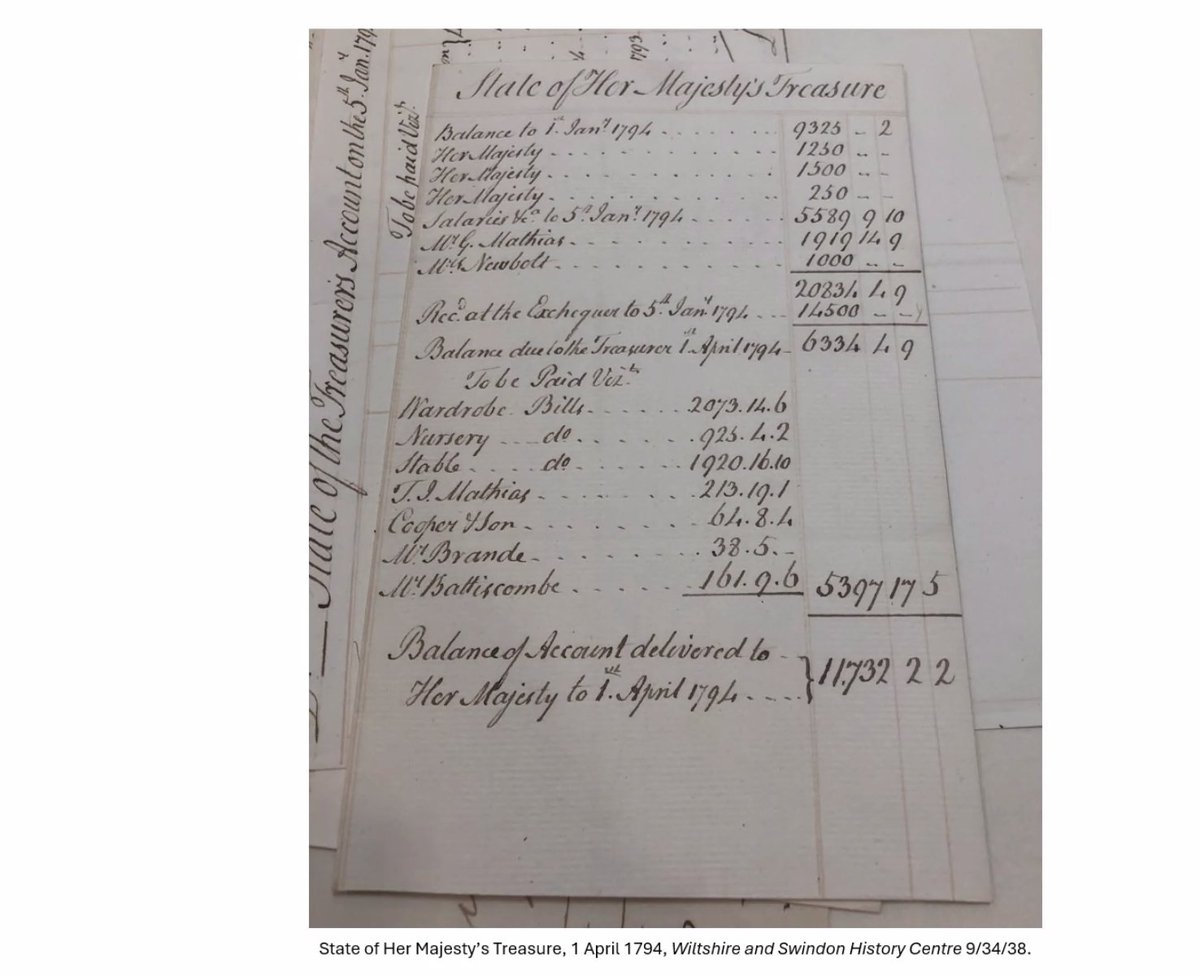 State of the Treasurer's Account on the 5th Jan. 179
To be paid Vizt.
State of Her Majesty's Treasure
Balance to 1st. Jany. 1794 . . . . . . . 9325 - 2
Her Majesty . . . . . . . . . . . . 1250 - -
Her Majesty . . . . . . . . . . . . 1500 - -
Her Majesty . . . . . . . . . . . . 250 - -
Salaries &ca. to 5th Jany. 1794 . . . . . 5589 9 10
Mr. G. Mathias . . . . . . . . . . . 1919 14 9
Mrs. Newbolt . . . . . . . . . . . . 1000 - -
20834 4 9
Recd. at the Exchequer to 5th. Jany. 1794 . . . 14500 - -
Balance due to the Treasurer 1st. April 1794 - 6334 4 9
To be Paid Vizt.
Wardrobe Bills . . . . . . 2073.14.6
Nursery .... do . . . . . . 925.4.2
Stable ..... do . . . . . . 1920.16.10
T. J. Mathias . . . . . . . 213.19.1
Cooper & Son . . . . . . . 64.8.4
Mr. Brande . . . . . . . . 38.5.-
Mr. Battiscombe . . . . . 161.9.6 5397 17 5
Balance of Account delivered to
Her Majesty to 1st. April 1794 . . . . } 11.732 2 2
State of Her Majesty's Treasure, 1 April 1794, Wiltshire and Swindon History Centre 9/34/38.